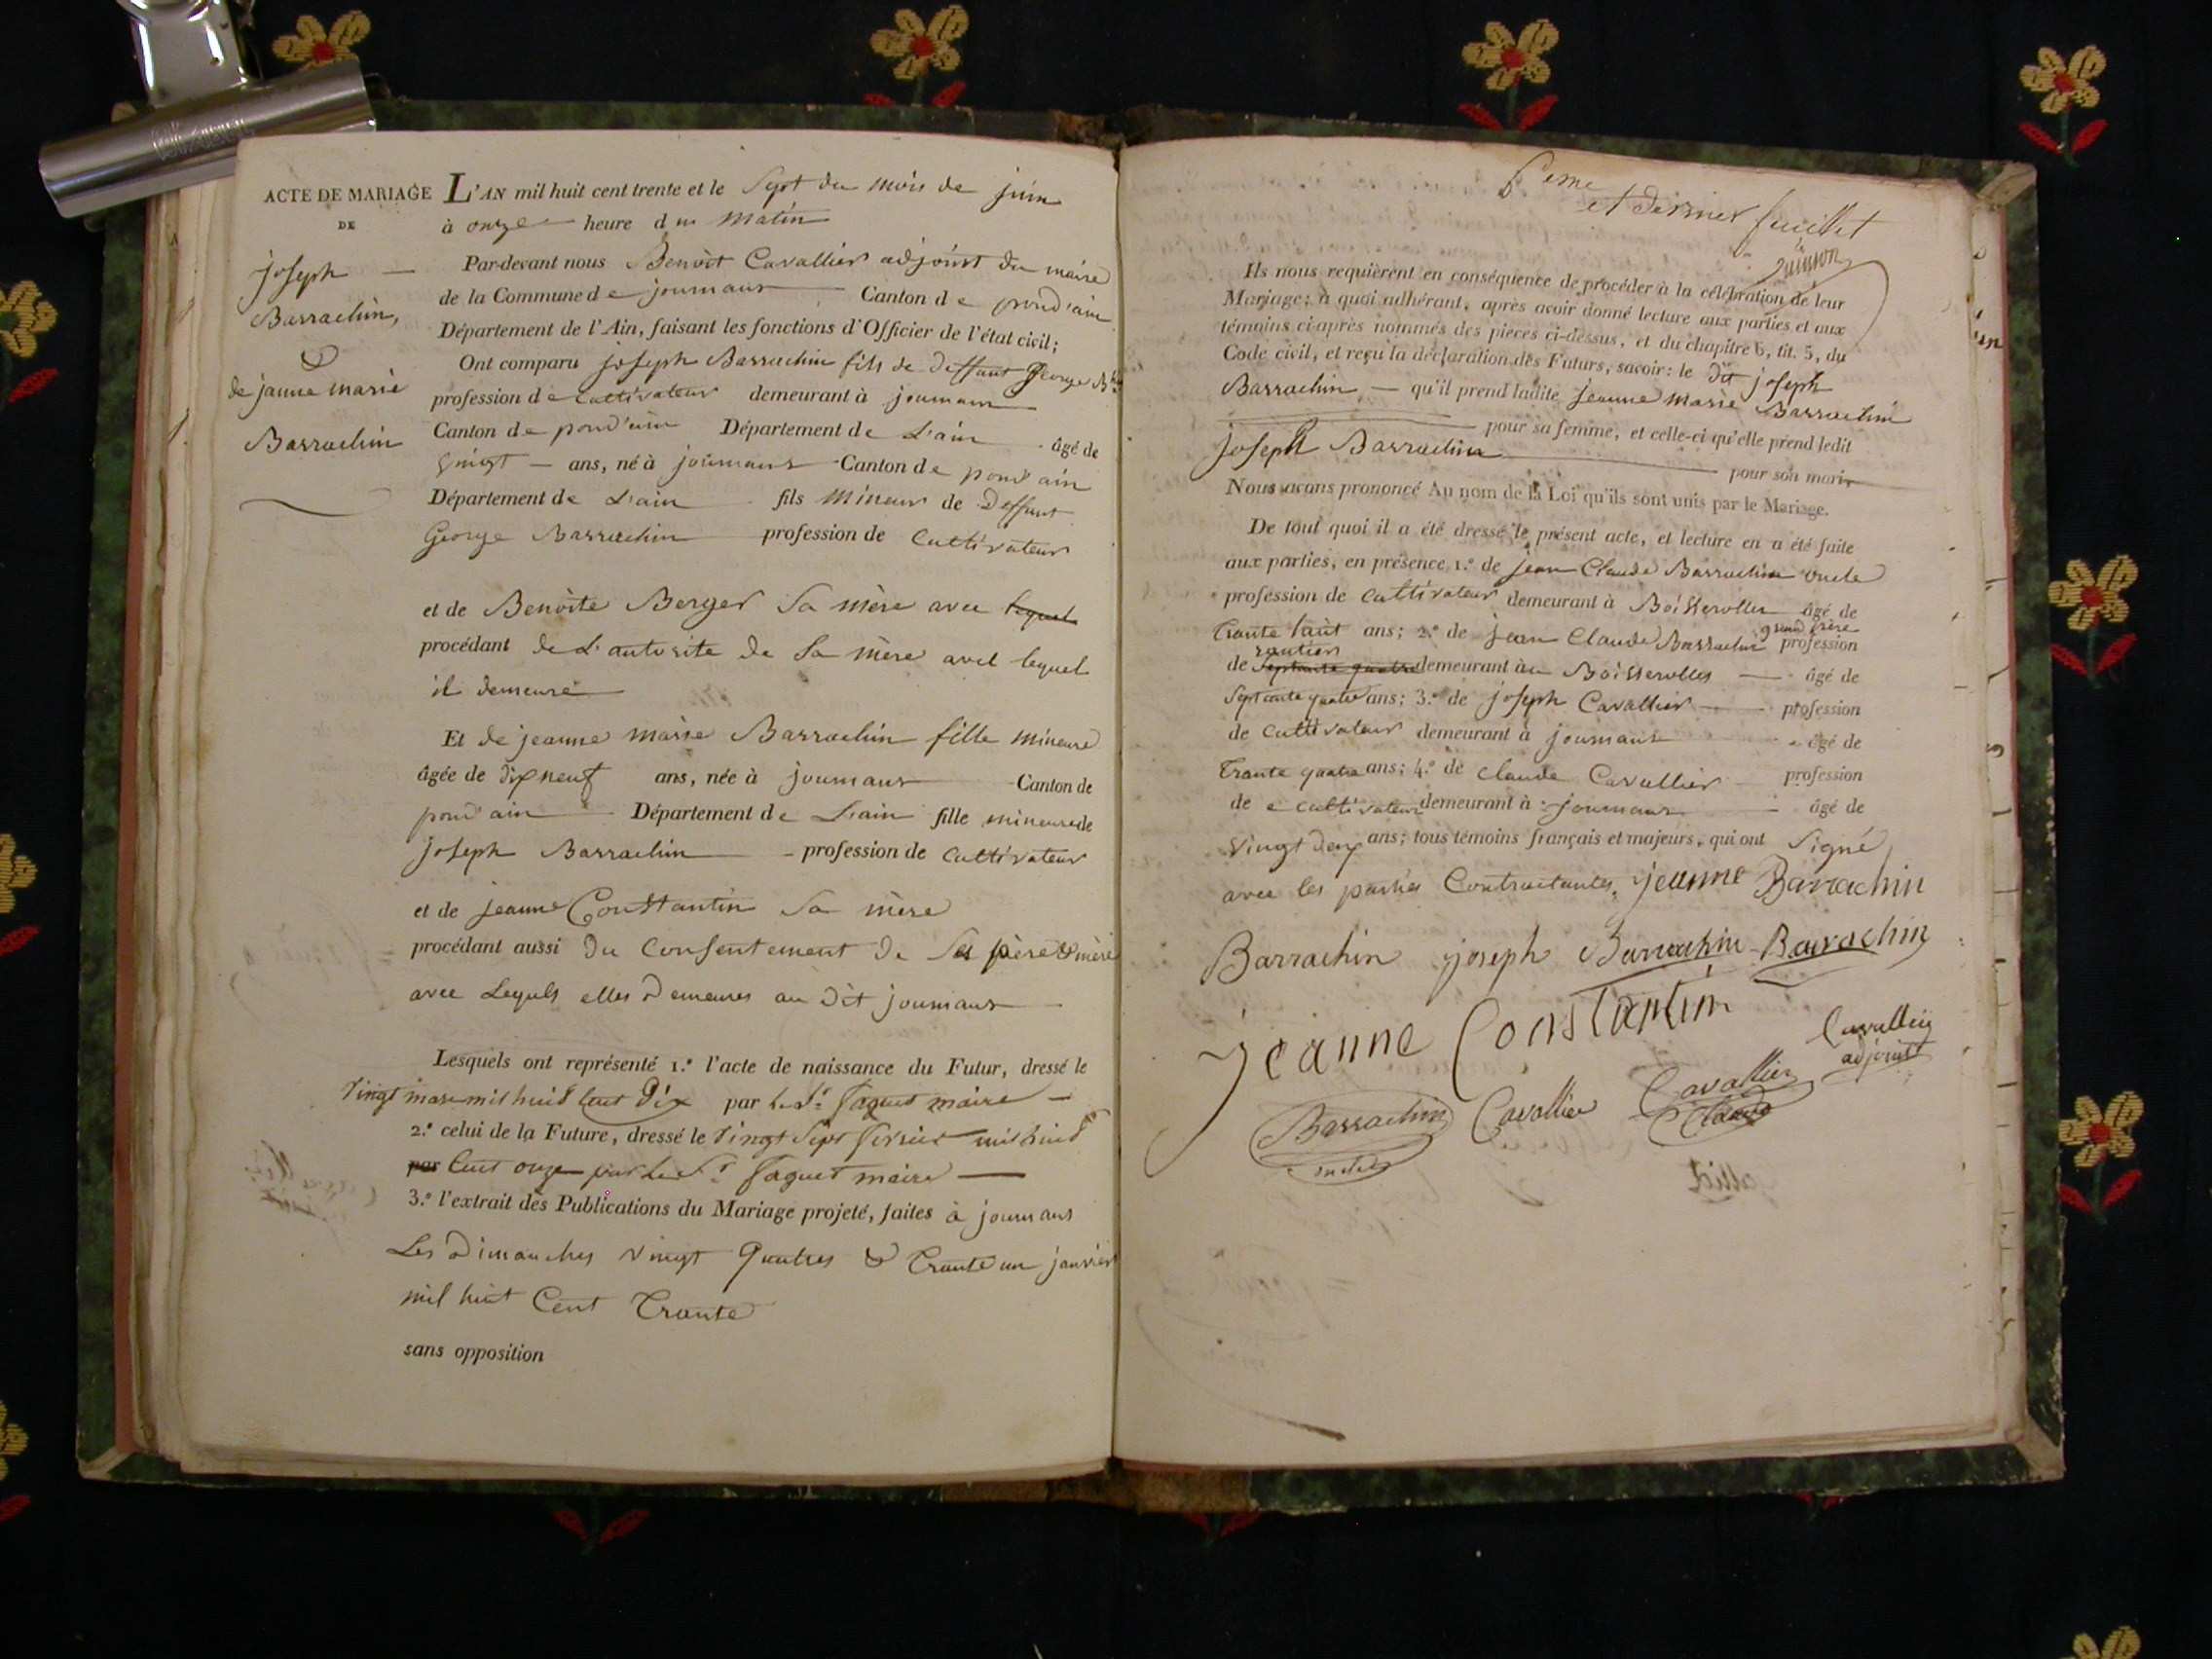 ACTE DE MARIAGE
DE
joseph
Barrachin,
&
de janne marie
Barrachin
L'AN mil huit cent trente et le Sept du mois de juin
à onze heure du matin
Par-devant nous Benoit Cavallier adjoint du maire
de la Commune de joumans Canton de pond'ain
Département de l'Ain, faisant les fonctions d'Officier de l'état civil;
Ont comparu joseph Barrachin fils de deffunt George
profession de Cultivateur demeurant à joumans
Canton de pond'ain Département de L'ain âgé de
vingt ans, né à joumans Canton de pond ain
Département de L'ain fils mineur de Deffunt
George Barrachin profession de Cultivateur
et de Benoite Berger Sa mère avec lequel
procédant de L'autorite de Sa mère avec lequel
il demeure
Et de jeanne marie Barrachin fille mineure
âgée de dixneuf ans, née à joumans Canton de
pond ain Département de L'ain fille mineure de
joseph Barrachin profession de Cultivateur
et de jeanne Constantin Sa mère
procédant aussi du Consentement de Ses père & mère
avec Lequels elles demeures au dit joumans
Lesquels ont représenté 1.º l'acte de naissance du Futur, dressé le
vingt mars mil huit Cent Dix par le Sr faguet maire
2.º celui de la Future, dressé le vingt Sept fevrier mil huit
par Cent onze par Le Sr faguet maire
3.º l'extrait des Publications du Mariage projeté, faites à joumans
Les Dimanches vingt quatres & trante un janvier
mil huit Cent Trante
sans opposition
6eme
et dernier feuillet
Ils nous requièrent en conséquence de procéder à la célébration de leur
Mariage; à quoi adhérant, après avoir donné lecture aux parties et aux
témoins ci-après nommés des pièces ci-dessus, et du chapitre 6, tit. 5, du
Code civil, et reçu la déclaration des Futurs, savoir: le dit joseph
Barrachin qu'il prend ladite jeanne marie Barrachin
pour sa femme, et celle-ci qu'elle prend ledit
joseph Barrachin pour son mari,
Nous avons prononcé Au nom de la Loi qu'ils sont unis par le Mariage.
De tout quoi il a été dressé le présent acte, et lecture en a été faite
aux parties, en présence 1.º de jean Claude Barrachin oncle
profession de cultivateur demeurant à Boisserolles âgé de
trante huit ans; 2.º de jean Claude Barrachin grand père profession
de rantier Septante quatre demeurant à Boisserolles âgé de
Septante quatre ans; 3.º de joseph Cavallier profession
de Cultivateur demeurant à joumans âgé de
trante quatre ans; 4.º de Claude Cavallier profession
de cultivateur demeurant à joumans âgé de
vingt deux ans; tous témoins français et majeurs, qui ont Signé
avec les parties Contractantes, jeanne Barrachin
Barrachin joseph Barrachin Barrachin
jeanne Constantin
Cavallier
adjoint
Barrachin Cavallier Cavallier
Claude